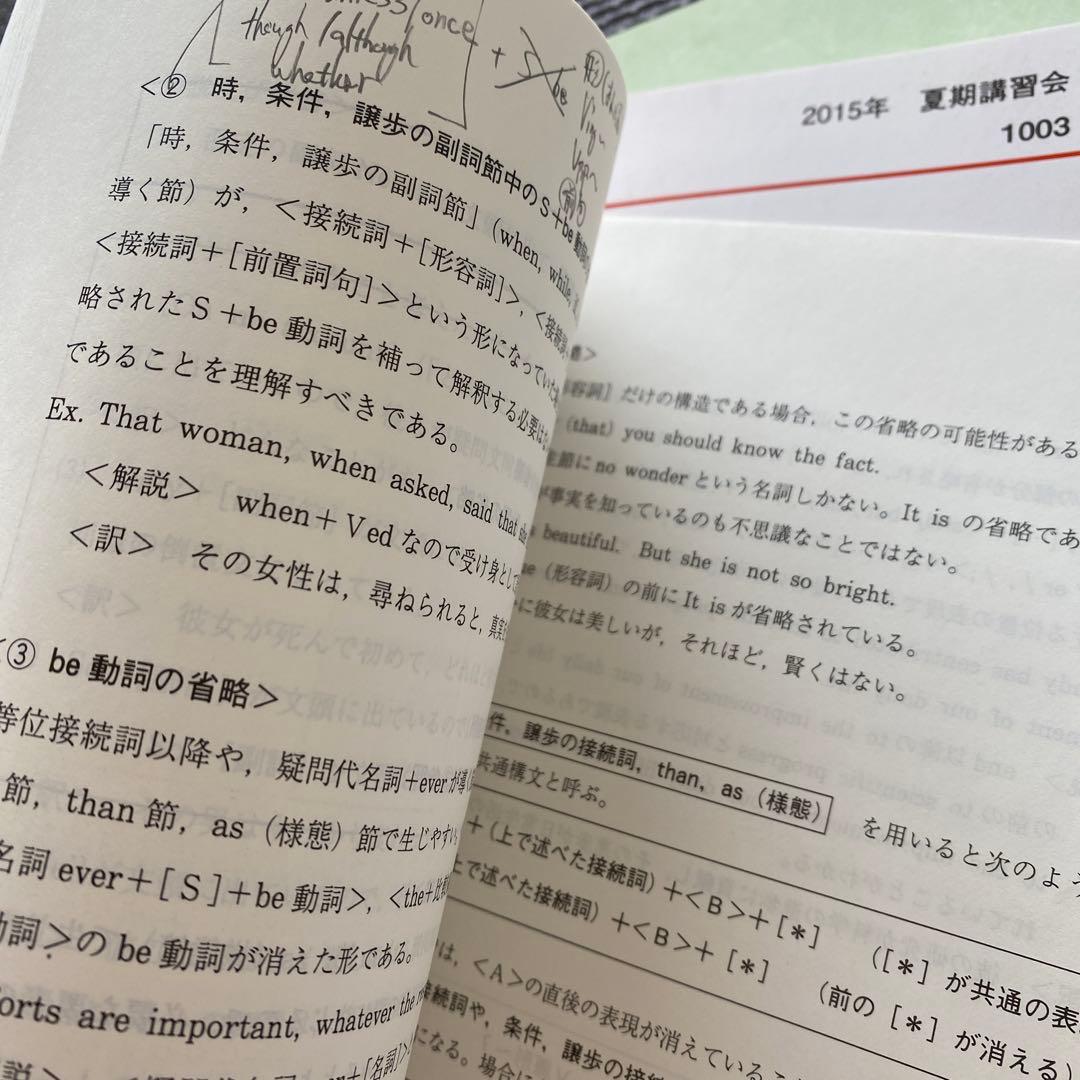 once
though/although
whether
+ S be
<② 時，条件，譲歩の副詞節中のS＋be動
「時，条件，譲歩の副詞節」（when, while,
導く節）が，<接続詞＋[形容詞]>，<接続詞
<接続詞＋[前置詞句]>という形になっていた
略されたS＋be動詞を補って解釈する必要は
であることを理解すべきである。
Ex. That woman, when asked, said that she
<解説> when＋Vedなので受け身として
<訳> その女性は，尋ねられると，真実
<③ be動詞の省略>
等位接続詞以降や，疑問代名詞＋everが導
節，than節，as（様態）節で生じやすい
名詞ever＋[S]＋be動詞>，<the＋比
動詞>のbe動詞が消えた形である。
orts are important, whatever the
2015年 夏期講習会
1003
容詞］だけの構造である場合，この省略の可能性がある
(that) you should know the fact.
主節にno wonderという名詞しかない。It isの省略であ
事実を知っているのも不思議なことではない。
beautiful. But she is not so bright.
ue（形容詞）の前にIt isが省略されている。
に彼女は美しいが，それほど，賢くはない。
件，譲歩の接続詞，than，as（様態） を用いると次のよ
共通構文と呼ぶ。
＋（上で述べた接続詞）＋<B>＋[＊] （[＊]が共通の表
上で述べた接続詞）＋<B>＋[＊] （前の[＊]が消える）
は，<A>の直後の表現が消えていること
接続詞や，条件，譲歩の接続
になる。場合に